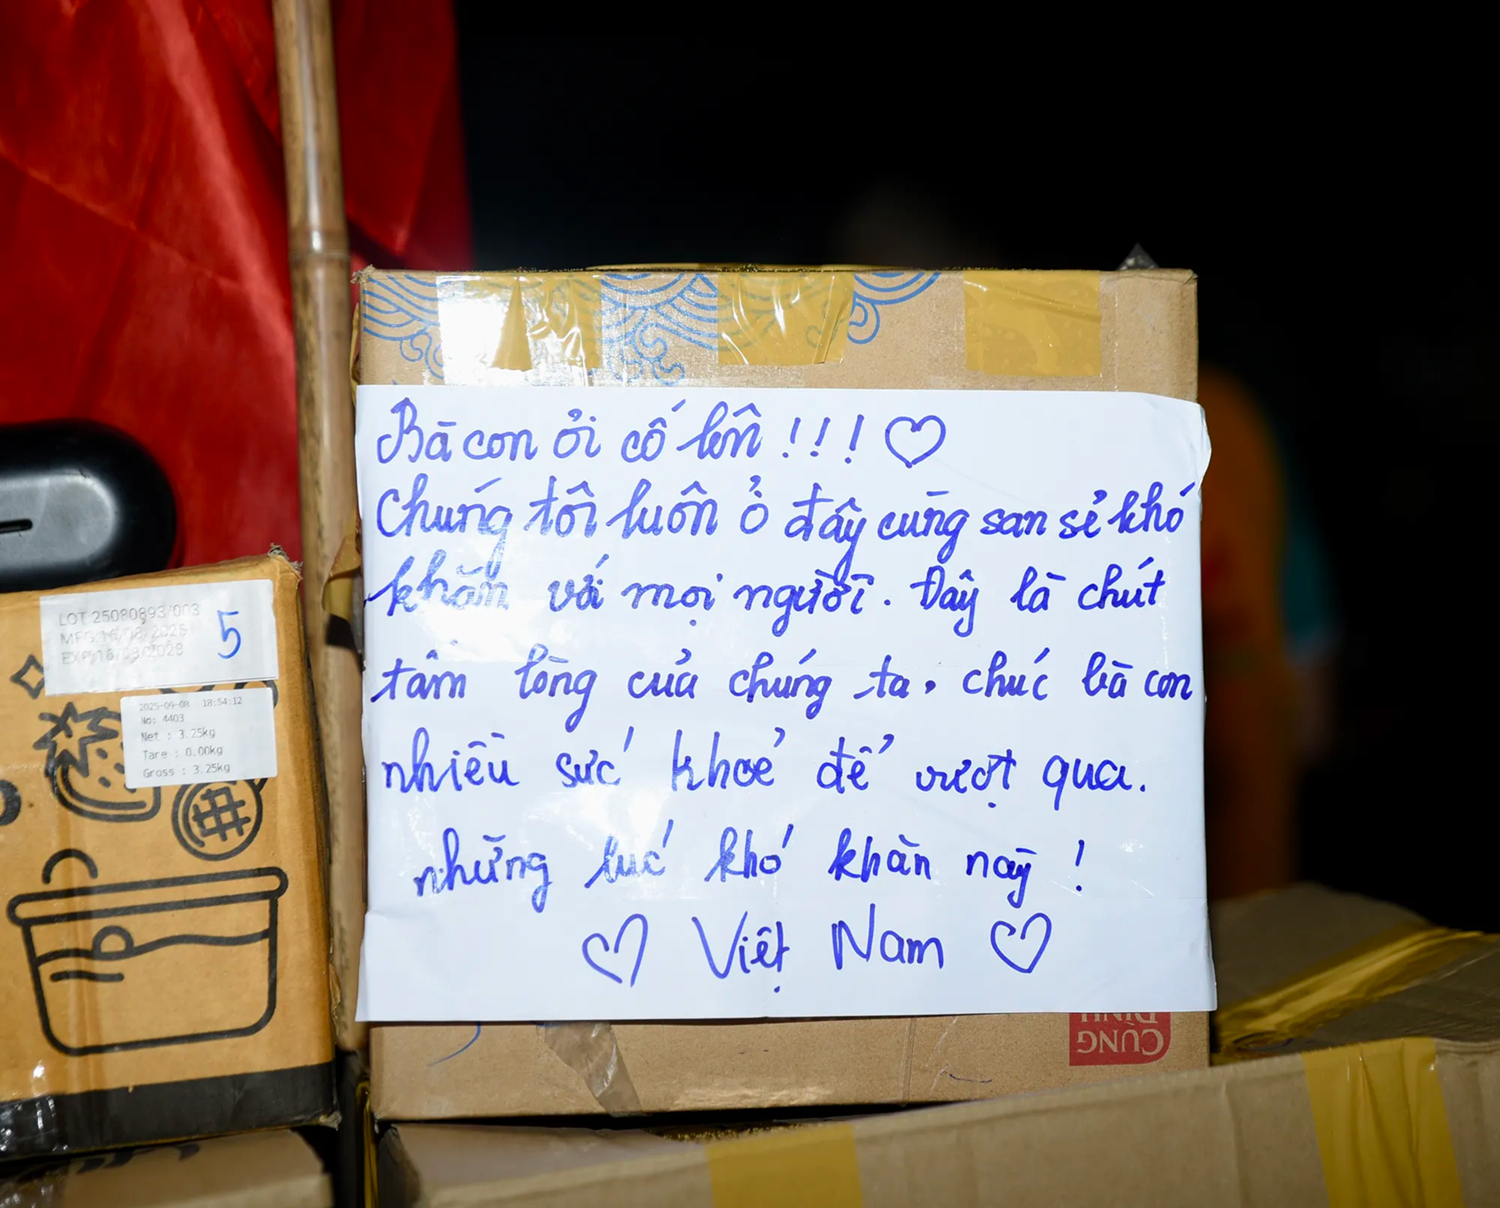 Bà con ơi cố lên !!! ♡
Chúng tôi luôn ở đây cùng san sẻ khó
khăn với mọi người. Đây là chút
tấm lòng của chúng ta. chúc bà con
nhiều sức khoẻ để vượt qua.
những lúc khó khăn này !
♡ Việt Nam ♡
LOT 25080893/003
MFG:16/08/2025
EXP:16/03/2028
5
2025-09-08 18:54:12
No: 4403
Net : 3.25kg
Tare : 0.00kg
Gross : 3.25kg
CUNG
ĐÌNH